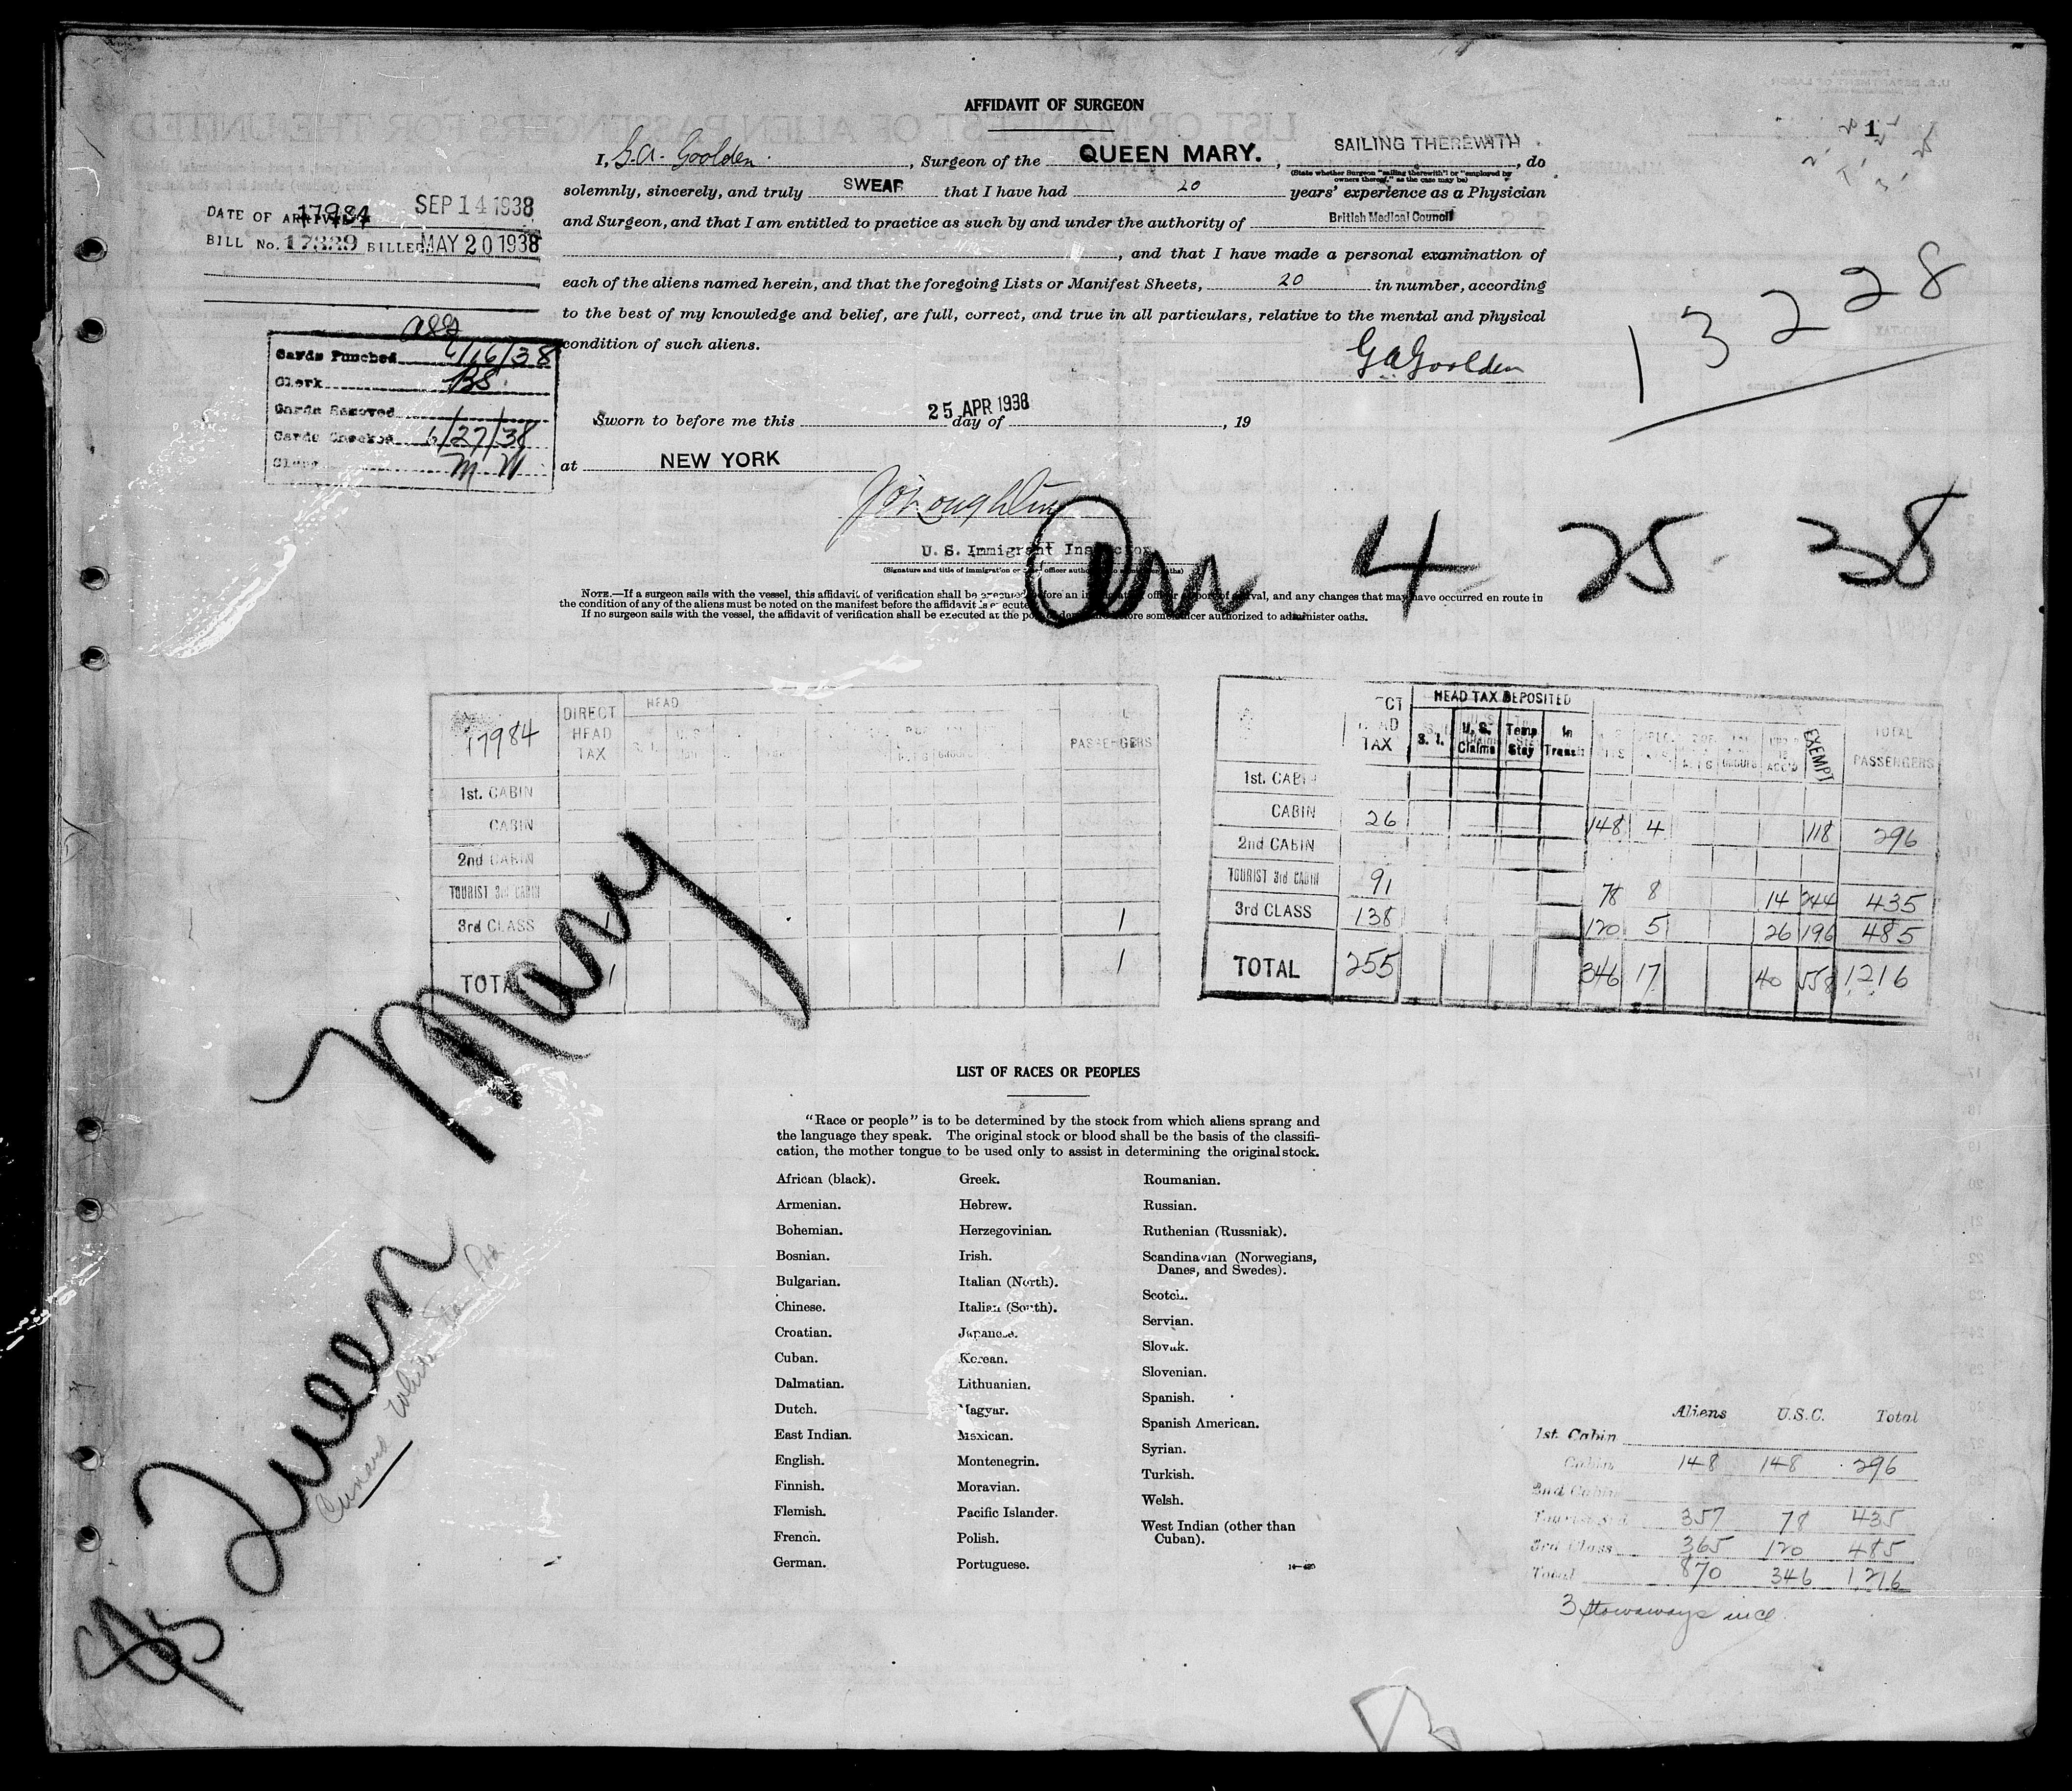 AFFIDAVIT OF SURGEON
1
I, G.A. Goolden, Surgeon of the QUEEN MARY., SAILING THEREWITH, do
(State whether Surgeon "sailing therewith" or "employed by
owners thereof," as the case may be)
solemnly, sincerely, and truly SWEAR that I have had 20 years' experience as a Physician
and Surgeon, and that I am entitled to practice as such by and under the authority of British Medical Council
, and that I have made a personal examination of
each of the aliens named herein, and that the foregoing Lists or Manifest Sheets, 20 in number, according
to the best of my knowledge and belief, are full, correct, and true in all particulars, relative to the mental and physical
condition of such aliens.
GAGoolden
DATE OF ARRIVAL 17984 SEP 14 1938
BILL No. 17339 BILLED MAY 20 1938
13228
Cards Punched 6/16/38
Clerk BS.
Cards Removed
Cards Checked 6/27/38
Clerk M W
Sworn to before me this 25 APR 1938 day of , 19
at NEW YORK
U. S. Immigrant Inspector
(Signature and title of immigration or other officer authorized to administer oaths)
Arr 4 25 - 38
NOTE.—If a surgeon sails with the vessel, this affidavit of verification shall be executed before an immigration officer at port of arrival, and any changes that may have occurred en route in
the condition of any of the aliens must be noted on the manifest before the affidavit is executed
If no surgeon sails with the vessel, the affidavit of verification shall be executed at the port of departure before some officer authorized to administer oaths.
17984 DIRECT HEAD TAX HEAD PASSENGERS
1st. CABIN
CABIN
2nd CABIN
TOURIST 3rd CABIN
3rd CLASS 1 1
TOTAL 1 1
HEAD TAX DEPOSITED
HEAD TAX S. I. U. S. Claims Temp Stay In Transit EXEMPT TOTAL PASSENGERS
1st. CABIN
CABIN 26 148 4 118 296
2nd CABIN
TOURIST 3rd CABIN 91 78 8 14 244 435
3rd CLASS 138 120 5 26 196 485
TOTAL 255 346 17 40 558 1216
SS Queen Mary
Cunard White Star
LIST OF RACES OR PEOPLES
"Race or people" is to be determined by the stock from which aliens sprang and
the language they speak. The original stock or blood shall be the basis of the classifi-
cation, the mother tongue to be used only to assist in determining the original stock.
African (black).
Armenian.
Bohemian.
Bosnian.
Bulgarian.
Chinese.
Croatian.
Cuban.
Dalmatian.
Dutch.
East Indian.
English.
Finnish.
Flemish.
French.
German.
Greek.
Hebrew.
Herzegovinian.
Irish.
Italian (North).
Italian (South).
Japanese.
Korean.
Lithuanian.
Magyar.
Mexican.
Montenegrin.
Moravian.
Pacific Islander.
Polish.
Portuguese.
Roumanian.
Russian.
Ruthenian (Russniak).
Scandinavian (Norwegians,
Danes, and Swedes).
Scotch.
Servian.
Slovak.
Slovenian.
Spanish.
Spanish American.
Syrian.
Turkish.
Welsh.
West Indian (other than
Cuban).
Aliens U.S.C. Total
1st. Cabin
Cabin 148 148 296
2nd Cabin
Tourist 3rd 357 78 435
3rd Class 365 120 485
Total 870 346 1,216
3 stowaways incl.